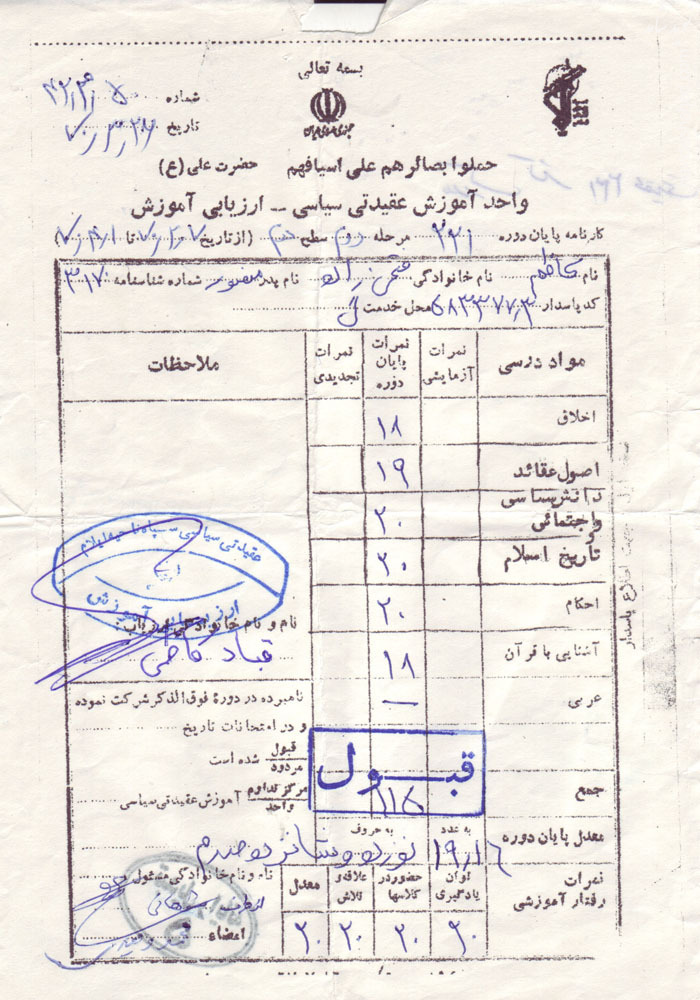 بسمه تعالی
جمهوری اسلامی ایران
شماره
تاریخ ۷۰٫۳٫۲۷
حملوا بصائرهم علی اسیافهم حضرت علی (ع)
واحد آموزش عقیدتی سیاسی ــ ارزیابی آموزش
کارنامه پایان دوره ۲۳۱ مرحله دوم سطح (از تاریخ تا
نام کاظم نام خانوادگی نام پدر منصور شماره شناسنامه ۳۱۷۰
کد پاسدار محل خدمت
مواد درسی نمرات آزمایشی نمرات پایان دوره نمرات تجدیدی ملاحظات
اخلاق ۱۸
اصول عقائد ۱۹
دانش سیاسی و اجتماعی ۲۰
و تاریخ اسلام ۲۰
احکام ۲۰
آشنایی با قرآن ۱۸
عربی —
عقیدتی سیاسی سپاه ناحیه ایلام
ارزیابی آموزش
نام و نام خانوادگی ارزیاب:
قباد کاظمی
نامبرده در دورهٔ فوق الذکر شرکت نموده
و در امتحانات تاریخ
قبول مردود شده است
مرکز تداوم واحد آموزش عقیدتی سیاسی
قبول
جمع ۱۱۵
معدل پایان دوره به عدد ۱۹٫۱۶ به حروف نوزده و شانزده صدم
نمرات رفتار آموزشی توان یادگیری حضور در کلاسها علاقه و تلاش معدل
۲۰ ۲۰ ۲۰ ۲۰
نام و نام خانوادگی مسئول
امضاء